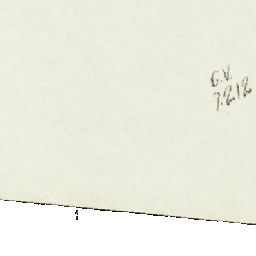 G.V.
7.2.12